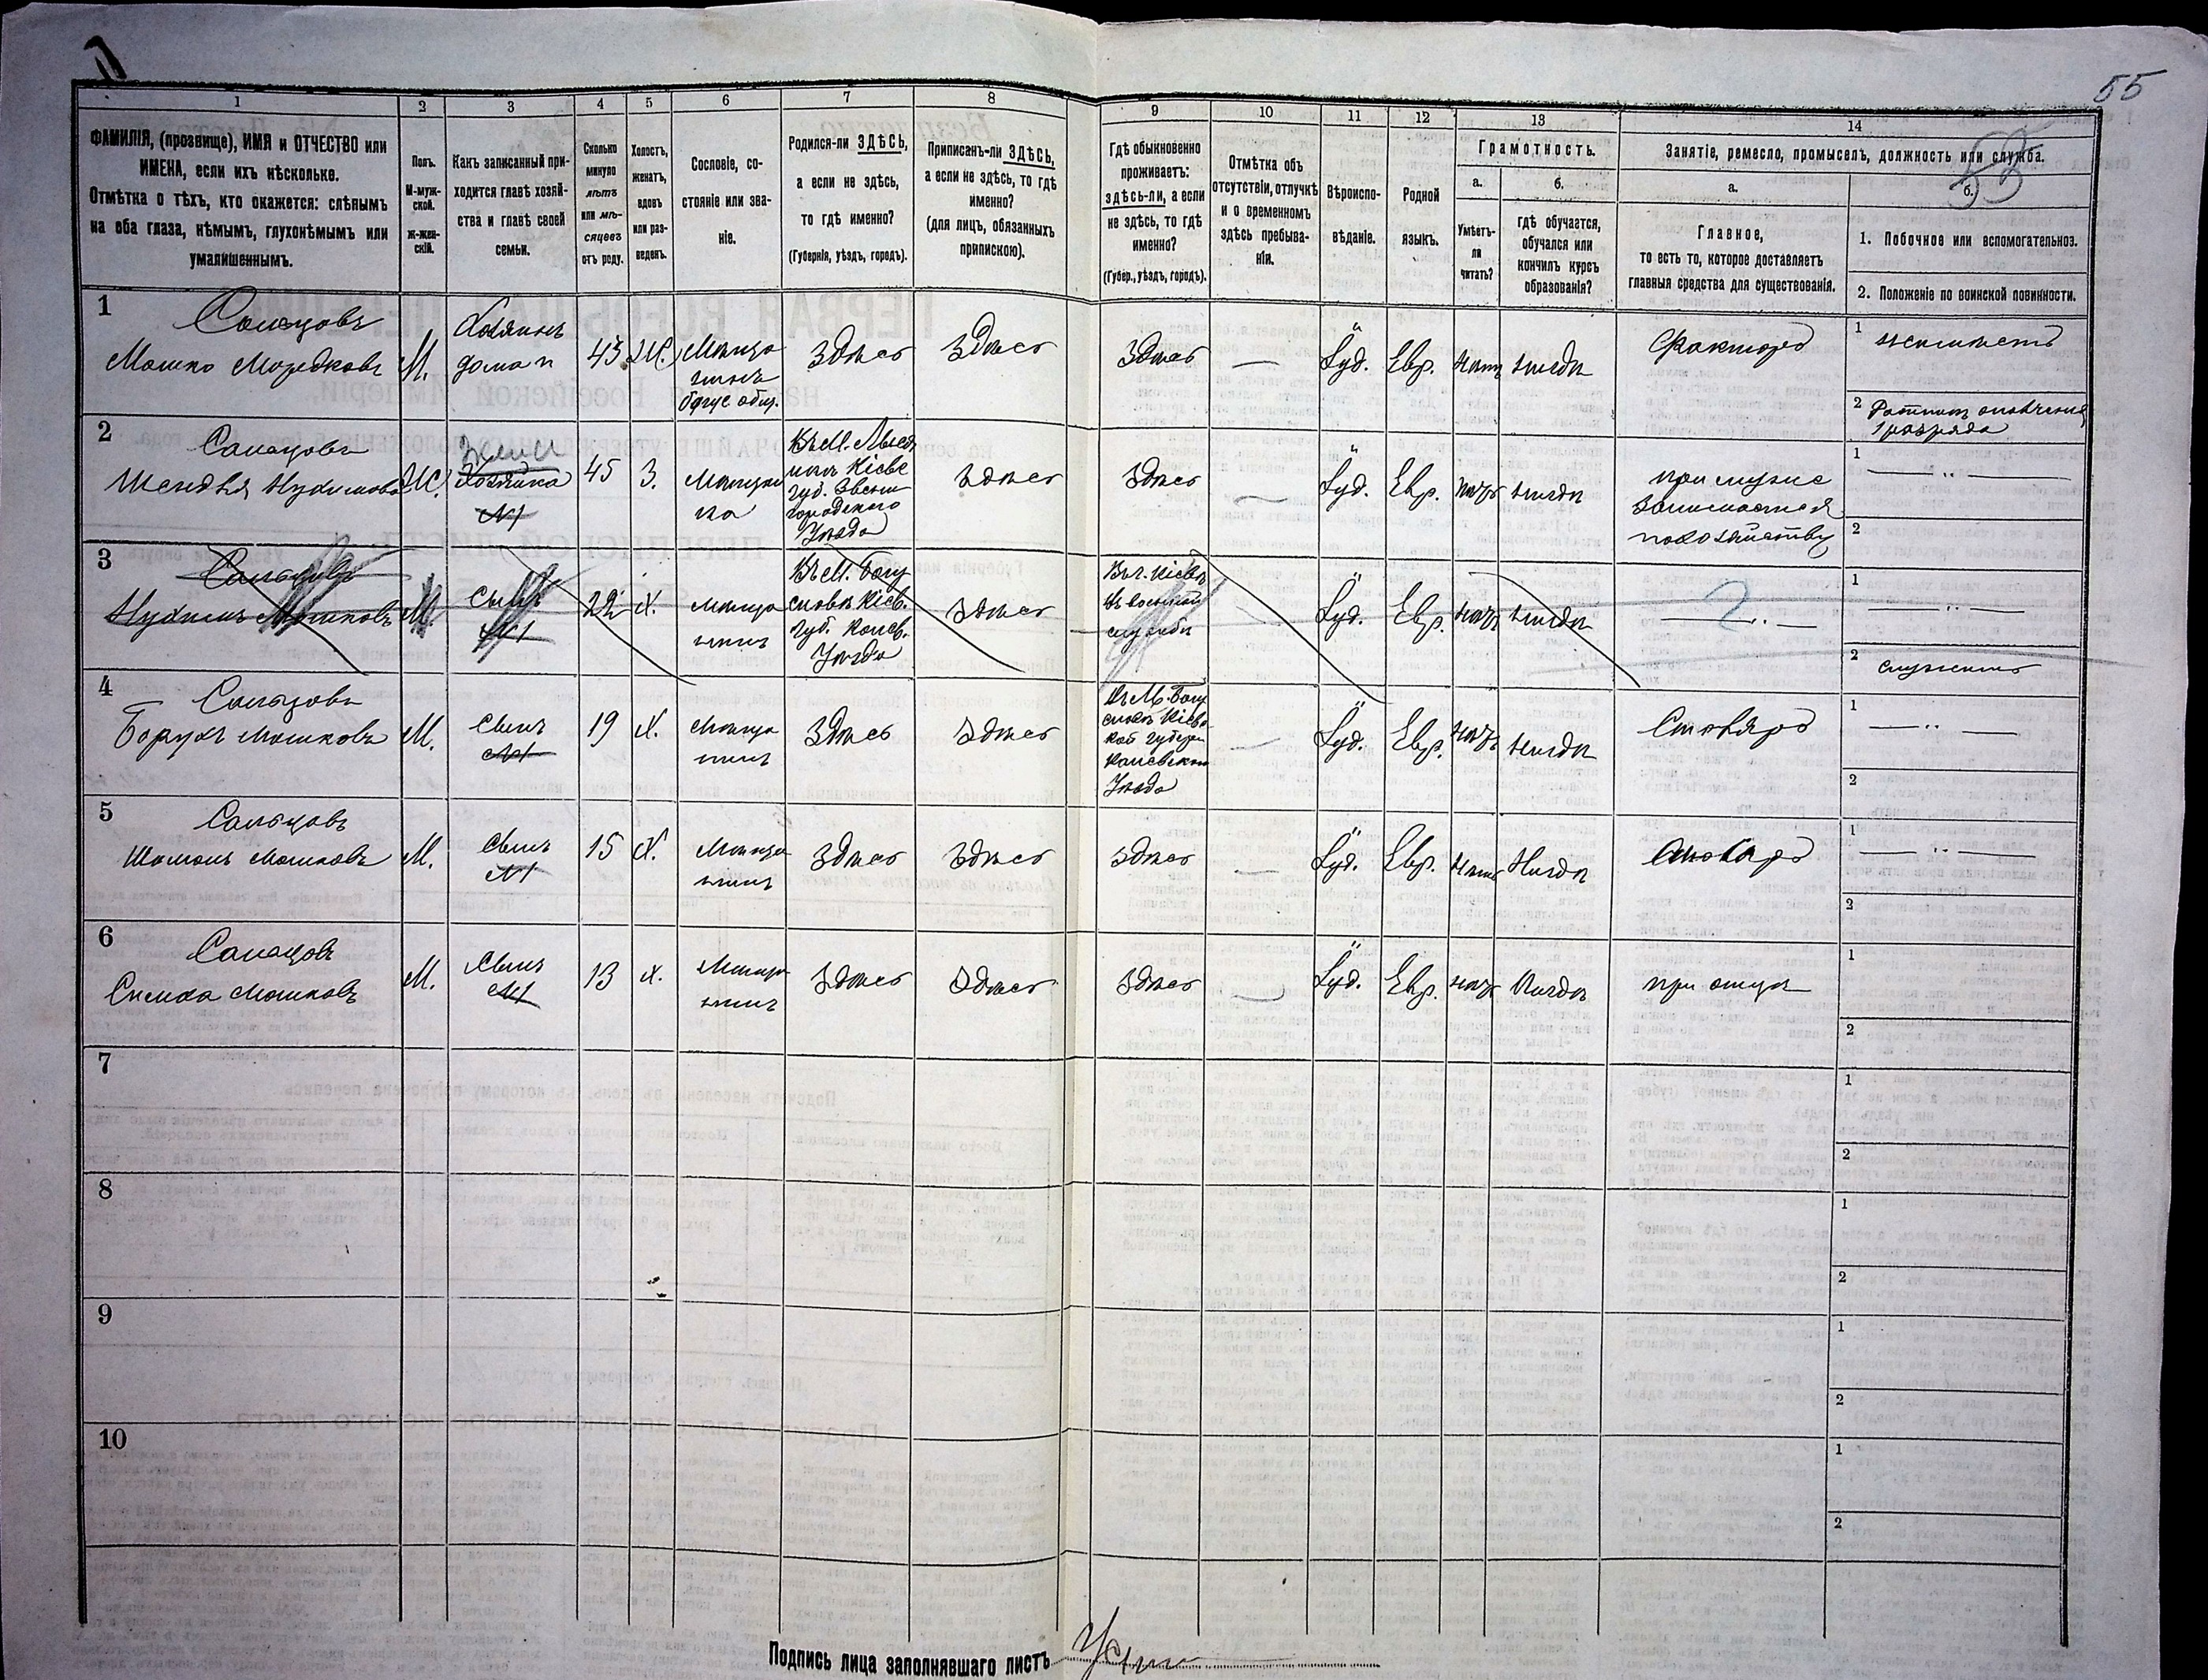 55
1
2
3
4
5
6
7
8
9
10
11
12
13
14
ФАМИЛІЯ, (прозвище), ИМЯ и ОТЧЕСТВО или
ИМЕНА, если ихъ нѣсколько.
Отмѣтка о тѣхъ, кто окажется: слѣпымъ
на оба глаза, нѣмымъ, глухонѣмымъ или
умалишеннымъ.
Полъ.
М-муж-
ской.
ж-жен-
скій.
Какъ записанный при-
ходится главѣ хозяй-
ства и главѣ своей
семьи.
Сколько
минуло
лѣтъ
или мѣ-
сяцевъ
отъ роду.
Холостъ,
женатъ,
вдовъ
или раз-
веденъ.
Сословіе, со-
стояніе или зва-
ніе.
Родился-ли ЗДѢСЬ,
а если не здѣсь,
то гдѣ именно?
(Губернія, уѣздъ, городъ).
Приписанъ-ли ЗДѢСЬ,
а если не здѣсь, то гдѣ
именно?
(для лицъ, обязанныхъ
припискою).
Гдѣ обыкновенно
проживаетъ:
здѣсь-ли, а если
не здѣсь, то гдѣ
именно?
(Губер., уѣздъ, городъ).
Отмѣтка объ
отсутствіи, отлучкѣ
и о временномъ
здѣсь пребыва-
ніи.
Вѣроиспо-
вѣданіе.
Родной
языкъ.
Грамотность.
а.
Умѣетъ-
ли
читать?
б.
гдѣ обучается,
обучался или
кончилъ курсъ
образованія?
Занятіе, ремесло, промыселъ, должность или служба.
а.
Главное,
то есть то, которое доставляетъ
главныя средства для существованія.
б.
1. Побочное или вспомогательноз.
2. Положеніе по воинской повинности.
1
Сальцовъ
Мошко Мордковъ
М.
Хозяинъ
дома
45
Ж.
Мѣща
нинъ
здѣсь
здѣсь
здѣсь
—
Іуд.
Евр.
нѣтъ
нигдѣ
Факторъ
1
2 Ратникъ ополченія
1 разряда
2
Сальцова
Ж.
жена
Хозяйка
№1
45
З.
Мѣщан
ка
Кіевс
губ. Звени
городскаго
Уѣзда
здѣсь
здѣсь
—
Іуд.
Евр.
нѣтъ
нигдѣ
при мужѣ
1 — „ —
2
3
Сальцовъ
Нухимъ Мошковъ
М
Сынъ
№1
22
Х.
мѣща
нинъ
Въ М. Богу
славѣ Кіев.
губ. Канев.
Уѣзда
здѣсь
Въ г. Кіевѣ
въ военной
службѣ
Іуд.
Евр.
нѣтъ
нигдѣ
?
1 — „ —
2 служитъ
4
Сальцовъ
Борухъ Мошковъ
М.
Сынъ
№1
19
Х.
Мѣща
нинъ
здѣсь
здѣсь
Въ М. Богу
славѣ Кіевс
кой губерн
Каневскаго
Уѣзда
—
Іуд.
Евр.
нѣтъ
нигдѣ
Столяръ
1 — „ —
2
5
Сальцовъ
Шоломъ Мошковъ
М.
Сынъ
№1
15
Х.
Мѣща
нинъ
здѣсь
здѣсь
здѣсь
—
Іуд.
Евр.
нѣтъ
Нигдѣ
Столяръ
1 — „ —
2
6
Сальцовъ
Симха Мошковъ
М.
Сынъ
№1
13
Х.
Мѣща
нинъ
здѣсь
здѣсь
здѣсь
—
Іуд.
Евр.
нѣтъ
Нигдѣ
при отцѣ
1
2
7
1
2
8
1
2
9
1
2
10
1
2
Подпись лица заполнявшаго листъ